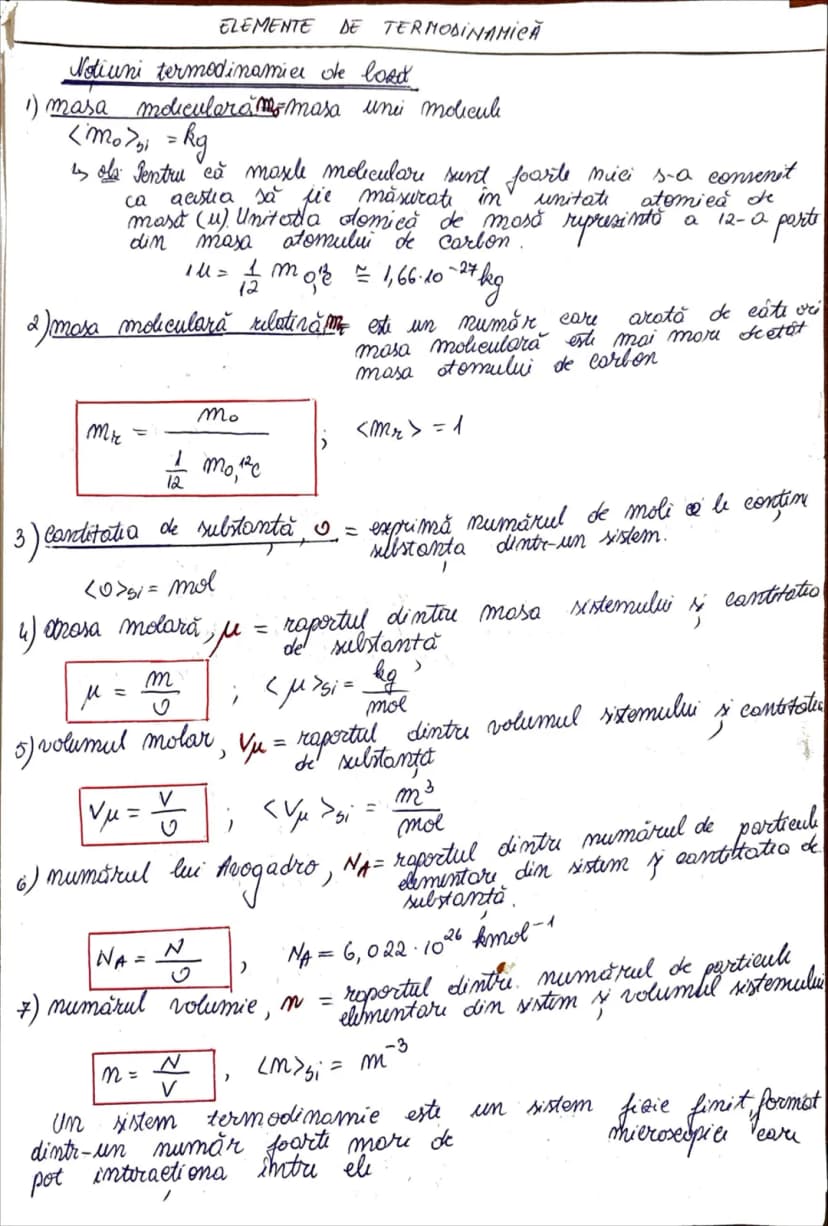 ELEMENTE DE TERMODINAMICĂ
Noțiuni termodinamice de bază
1) masa moleculară m₀=masa unei molecule
<m₀>si = kg
↳ ob: Pentru că masele moleculare sunt foarte mici s-a convenit
ca acestea să fie măsurate în unitate atomică de
masă (u). Unitatea atomică de masă reprezintă a 12-a parte
din masa atomului de carbon.
1u = 1/12 m₀,¹²c ≅ 1,66·10⁻²⁷ kg
2) masa moleculară relativă mᵣ= este un număr care arată de câte ori
masa moleculară este mai mare decât
masa atomului de carbon
mᵣ = m₀ / (1/12 m₀,¹²c) ; <mᵣ> = 1
3) Cantitatea de substanță, υ = exprimă numărul de moli ce le conține
substanța dintr-un sistem.
<υ>si = mol
4) masa molară, μ = raportul dintre masa sistemului și cantitatea
de substanță
μ = m/υ ; <μ>si = kg/mol
5) volumul molar, Vμ = raportul dintre volumul sistemului și cantitatea
de substanță
Vμ = V/υ ; <Vμ>si = m³/mol
6) numărul lui Avogadro, NA = raportul dintre numărul de particule
elementare din sistem și cantitatea de
substanță.
NA = N/υ , NA = 6,022·10²⁶ kmol⁻¹
7) numărul volumic, n = raportul dintre numărul de particule
elementare din sistem și volumul sistemului
n = N/V , <n>si = m⁻³
Un sistem termodinamic este un sistem fizic finit, format
dintr-un număr foarte mare de microscopice care
pot interacționa între ele